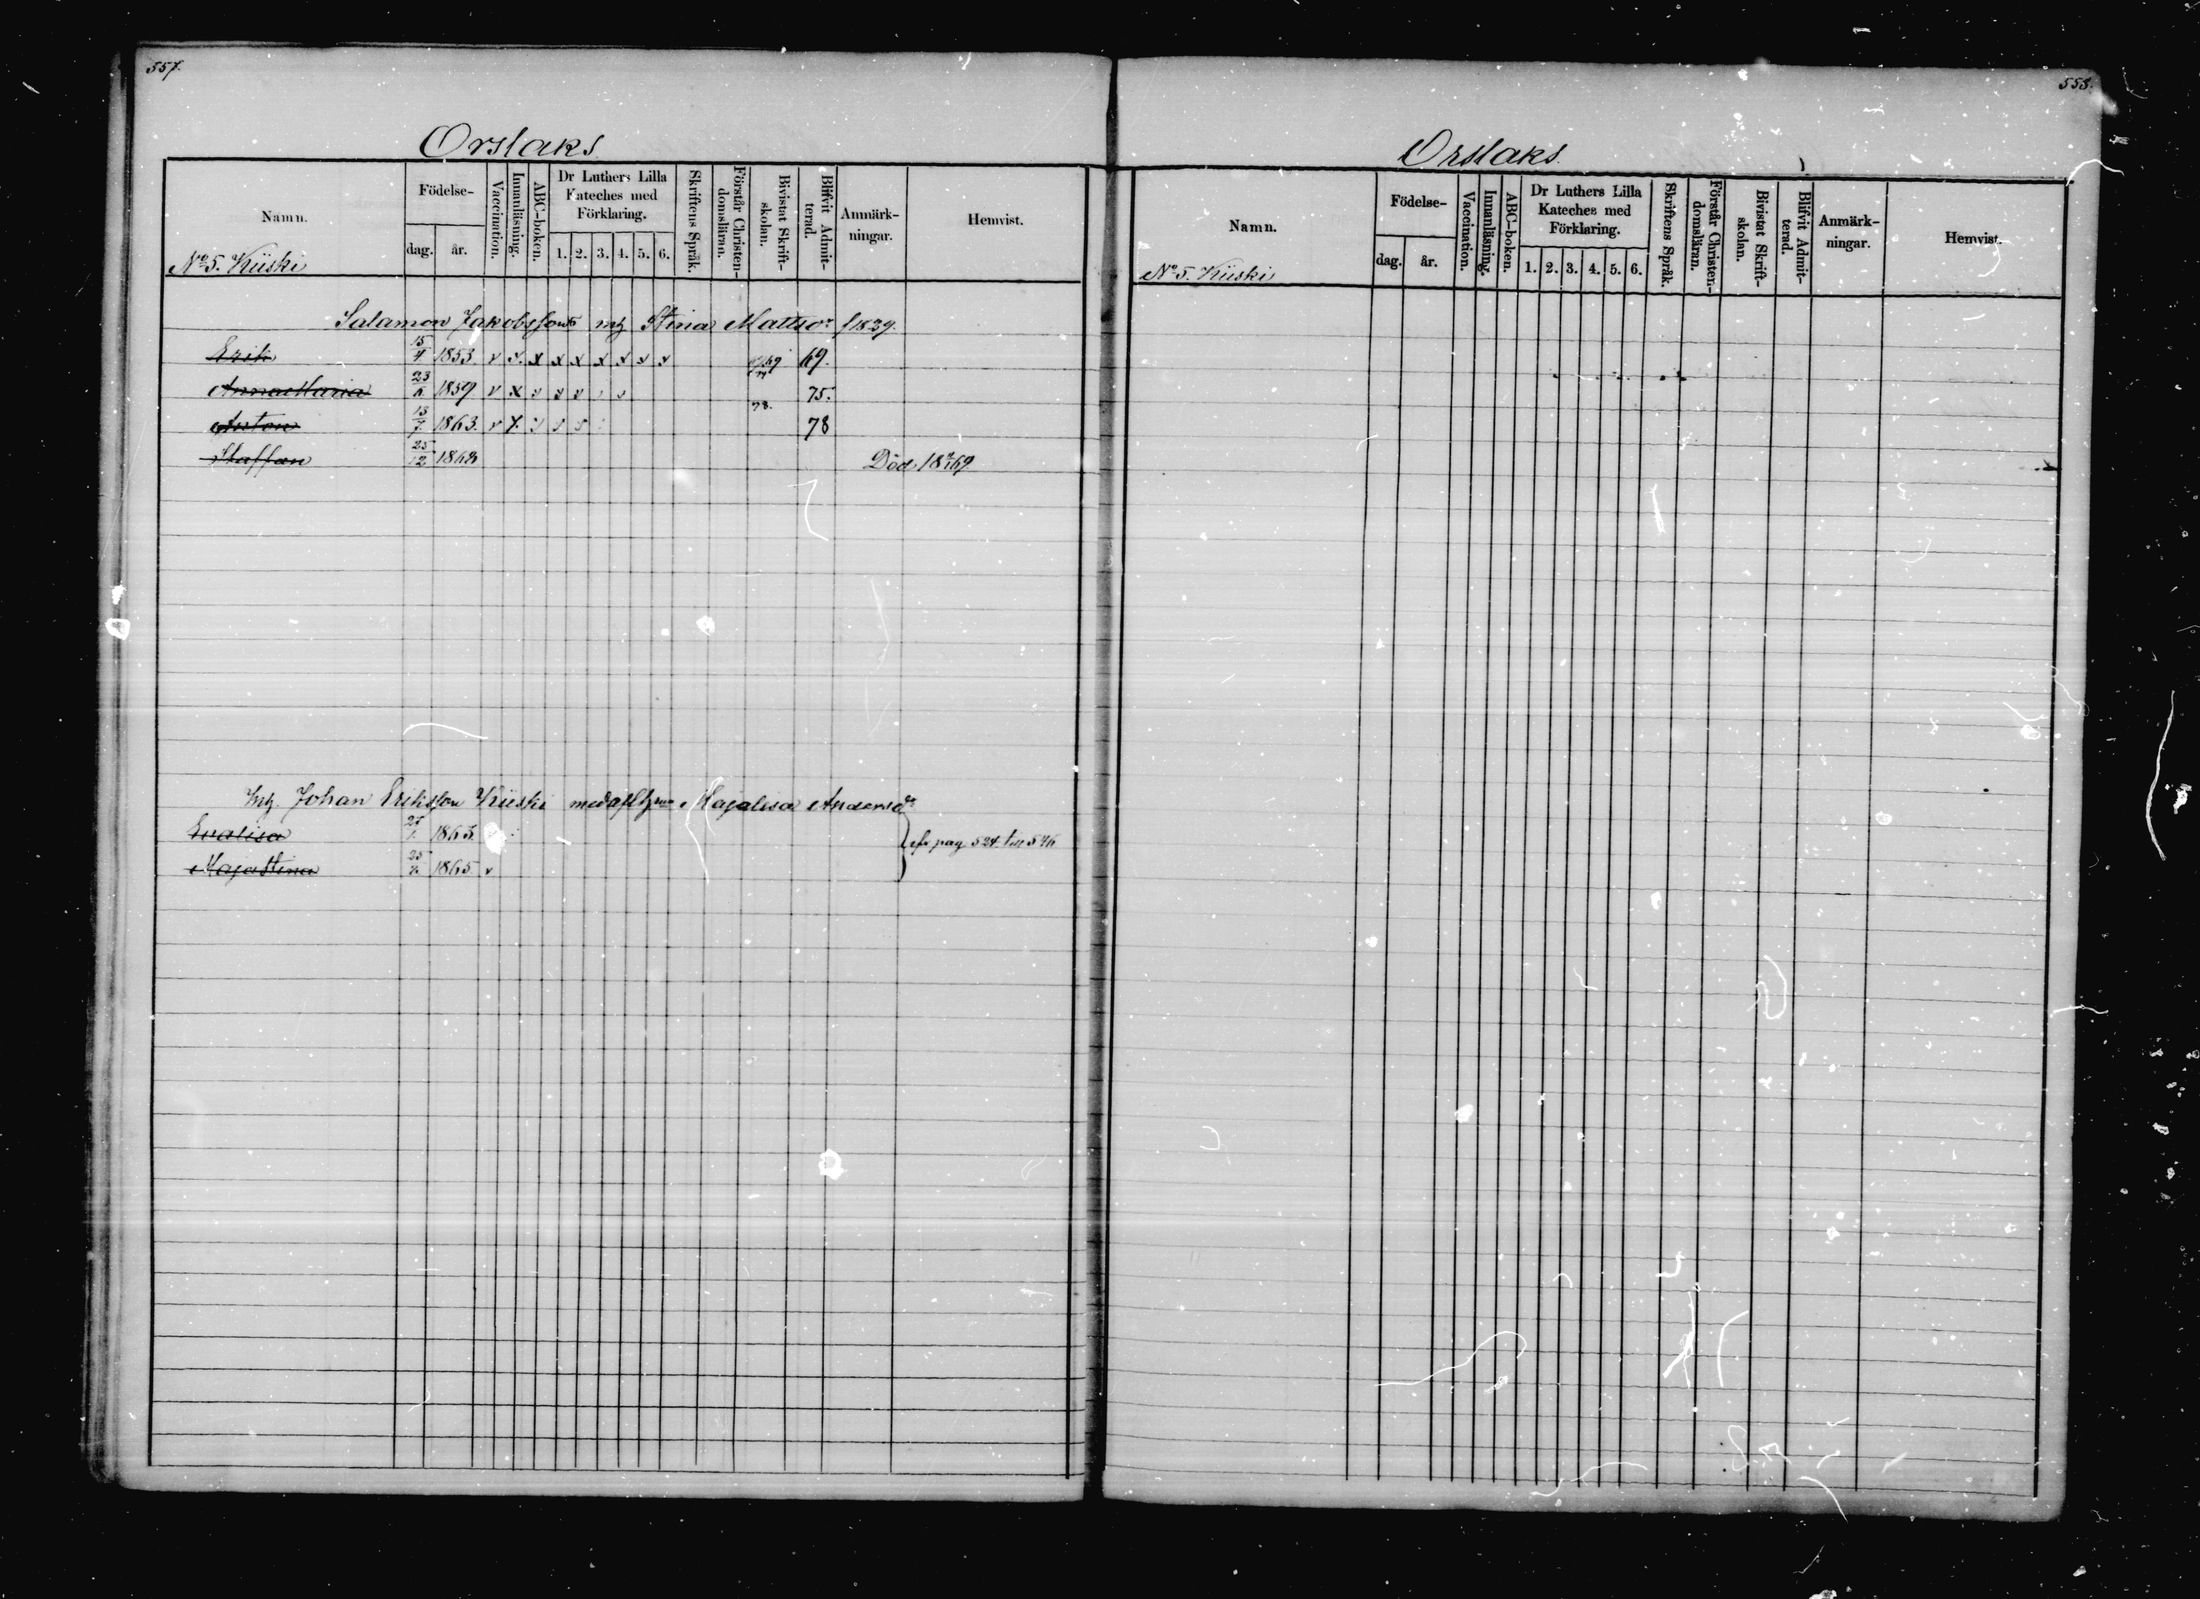 557.
Orslaks
Namn.
Födelse-
dag. år.
Vaccination.
Innanläsning.
ABC-boken.
Dr Luthers Lilla Kateches med Förklaring.
1. 2. 3. 4. 5. 6.
Skriftens Språk.
Förstår Christen-domsläran.
Bivistat Skrift-skolan.
Blifvit Admit-terad.
Anmärk-ningar.
Hemvist.
No 5. Kiiski
Salamon Jakobsson Stina Mattsdr f 1829.
Erik 15/4 1853. v v. x x x x x v v 69.
Anna Maria 23 1859 v x v v v 75.
78.
Anton 13/7 1863. v x 78
Staffan 25/12 1868 Död 69
Johan Eriksson Kiiski med Majalisa Andersdr
Evalisa 27/1 1863. pag 524.
Maja Stina 25 1865 v
558.
Orslaks.
Namn.
Födelse-
dag. år.
Vaccination.
Innanläsning.
ABC-boken.
Dr Luthers Lilla Kateches med Förklaring.
1. 2. 3. 4. 5. 6.
Skriftens Språk.
Förstår Christen-domsläran.
Bivistat Skrift-skolan.
Blifvit Admit-terad.
Anmärk-ningar.
Hemvist.
No 5. Kiiski